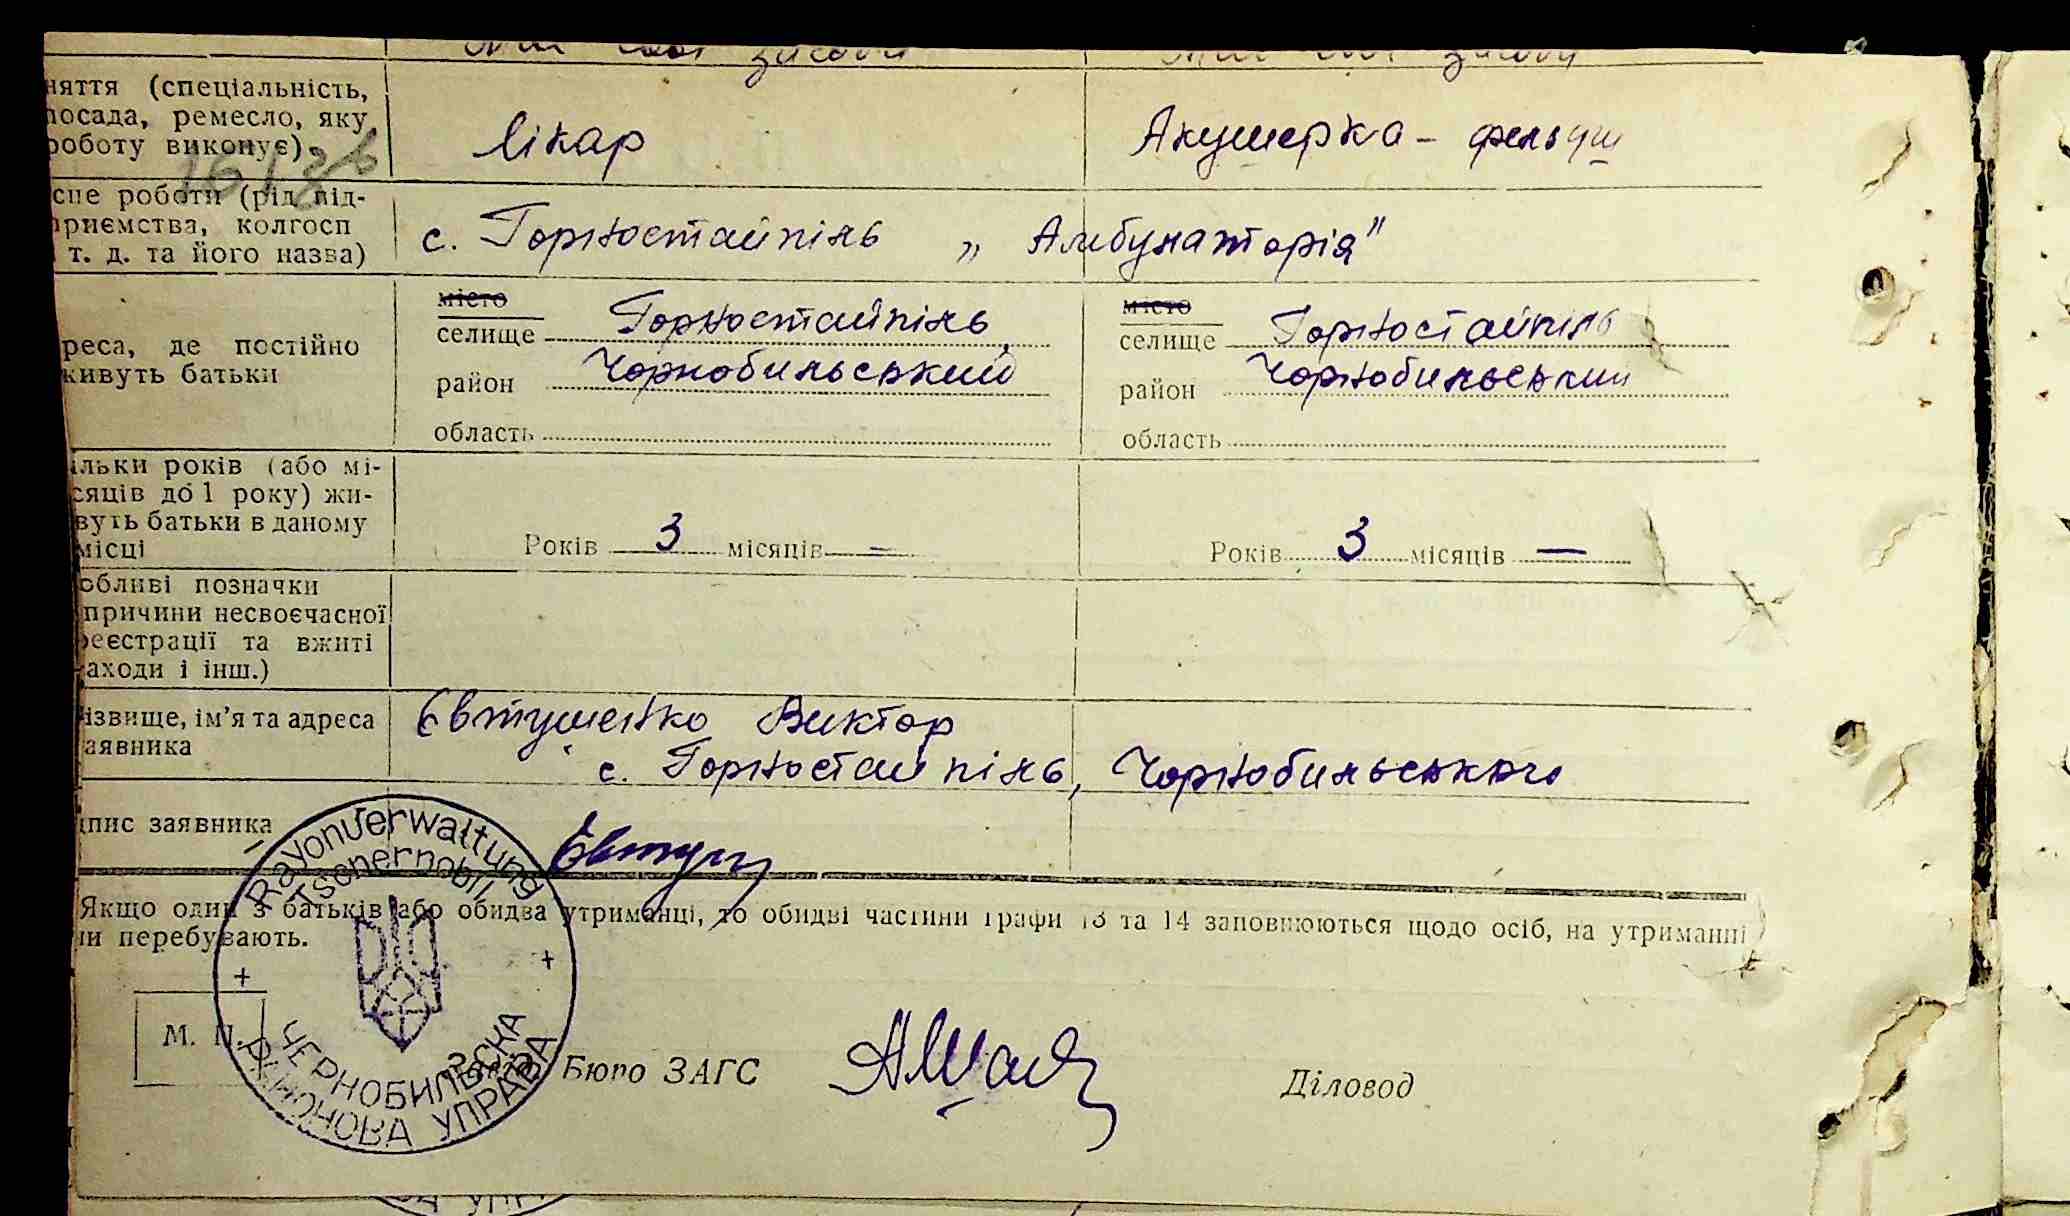 засоби засоби
няття (спеціальність,
посада, ремесло, яку
роботу виконує)
Лікар Акушерка – фельдш
сце роботи (рід під-
приємства, колгосп
т. д. та його назва)
с. Горностайпіль „Амбулаторія"
реса, де постійно
живуть батьки
місто
селище Горностайпіль
район Чорнобильський
область
місто
селище Горностайпіль
район Чорнобильський
область
ільки років (або мі-
сяців до 1 року) жи-
вуть батьки в даному
місці
Років 3 місяців – Років 3 місяців —
обливі позначки
причини несвоєчасної
реєстрації та вжиті
заходи і інш.)
ізвище, ім'я та адреса
заявника
Євтушенко Виктор
с. Горностайпіль, Чорнобильського
дпис заявника
Євтуш
Якщо один з батьків або обидва утриманці, то обидві частини графи 13 та 14 заповнюються щодо осіб, на утриманні
ни перебувають.
М. П.
Rayonverwaltung
Tschernobil
ЧЕРНОБИЛЬСКА
РАЙОНОВА УПРАВА
Бюро ЗАГС
Діловод